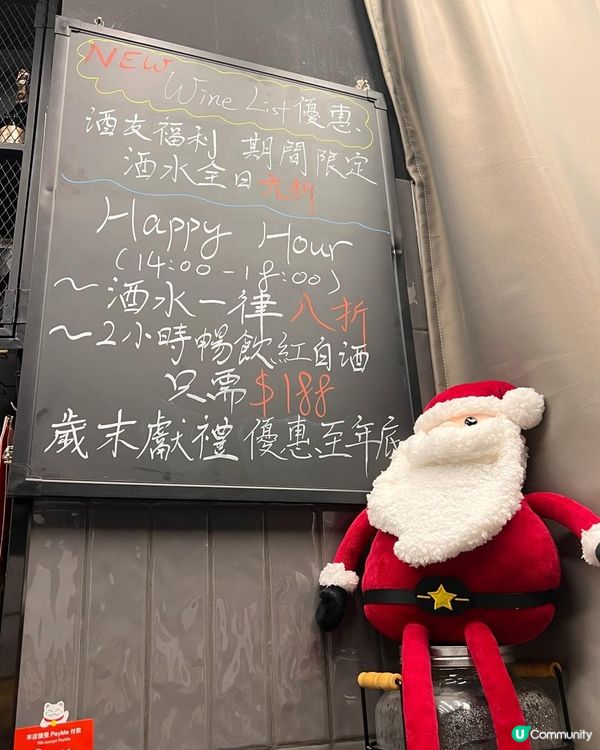 NEW
Wine List優惠
酒友福利 期間限定
酒水全日九折
Happy Hour
(14:00-18:00)
~酒水一律八折
~2小時暢飲紅白酒
只需$188
歲末獻禮 優惠至年底
本店接受 PayMe 付款
We accept PayMe
U Community